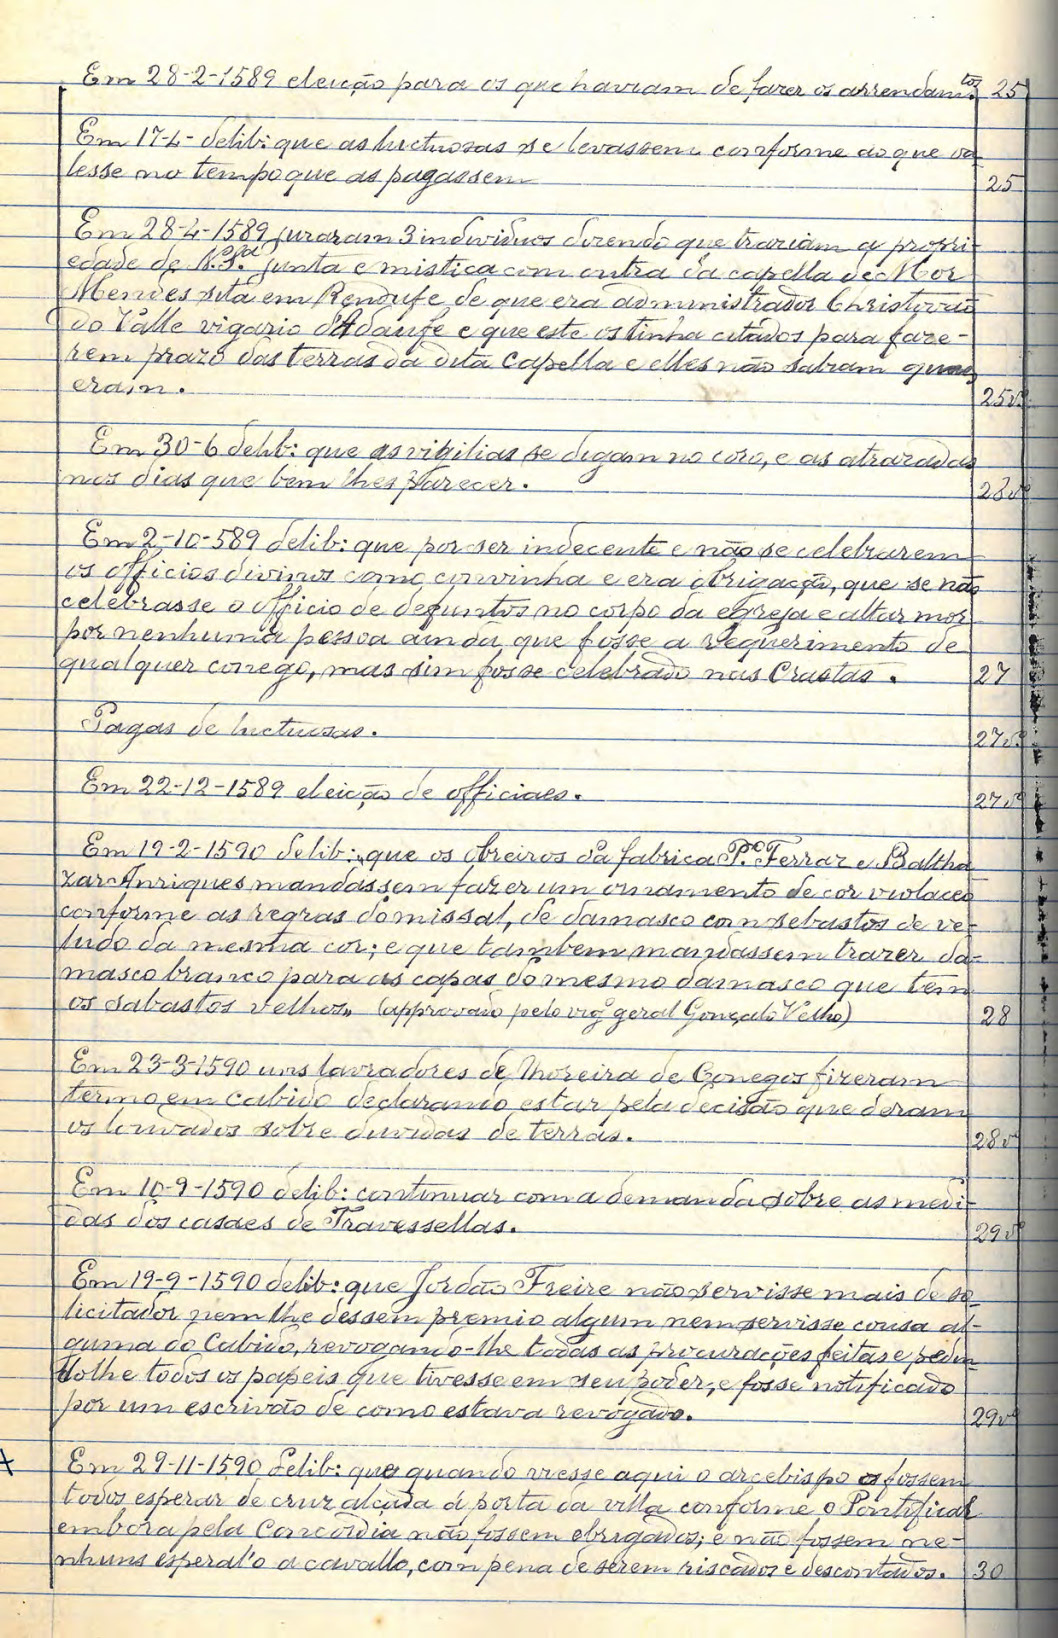 Em 28-2-1589 eleição para os que haviam de fazer os arrendam.tos 25
Em 17-4- delib: que as luctuosas se levassem conforme ao que va-
lesse no tempo que as pagassem 25
Em 28-4-1589 juraram 3 individuos dizendo que traziam a propri-
edade de N. Sra. junta e mistica com outra da capella de Mor
Mendes sita em Rendufe de que era administrador Christovão
do Valle vigario d'Adaufe e que este os tinha citados para faze-
rem prazo das terras da dita capella e elles não sabiam quaes
eram. 25vº
Em 30-6 delib: que as vigilias se digam no coro, e as atrazadas
nos dias que bem lhes parecer. 28vº
Em 2-10-589 delib: que por ser indecente e não se celebrarem
os officios divinos como convinha e era obrigação, que se não
celebrasse o officio de defuntos no corpo da egreja e altar mor
por nenhuma pessoa ainda, que fosse a requerimento de
qualquer conego, mas sim fosse celebrado nas Crastas. 27
Pagas de luctuosas. 27vº
Em 22-12-1589 eleição de officiaes. 27vº
Em 19-2-1590 delib: "que os obreiros da fabrica P.º Ferraz e Baltha
zar Anriques mandassem fazer um ornamento de cor violaceo
conforme as regras do missal, de damasco com sebastos de ve-
ludo da mesma cor; e que tambem mandassem trazer da-
masco branco para as capas do mesmo damasco que tem
os sabastos velhos" (approvado pelo vigº geral Gonçalo Velho) 28
Em 23-3-1590 uns lavradores de Moreira de Conegos fizeram
termo em cabido declarando estar pela decisão que deram
os louvados sobre duvidas de terras. 28vº
Em 10-9-1590 delib: continuar com a demanda sobre as medi-
das dos casaes de Travessellas. 29vº
Em 19-9-1590 delib: que Jordão Freire não servisse mais de so-
licitador nem lhe dessem premio algum nem servisse cousa al-
guma do Cabido, revogando-lhe todas as procurações feitas e pedin-
dolhe todos os papeis que tivesse em seu poder, e fosse notificado
por um escrivão de como estava revogado. 29vº
X Em 29-11-1590 delib: que quando viesse aqui o arcebispo os fossem
todos esperar de cruz alçada á porta da villa conforme o Pontifical
embora pela Concordia não fossem obrigados; e não fossem ne-
nhuns esperal'o a cavallo, com pena de serem riscados e descontados. 30